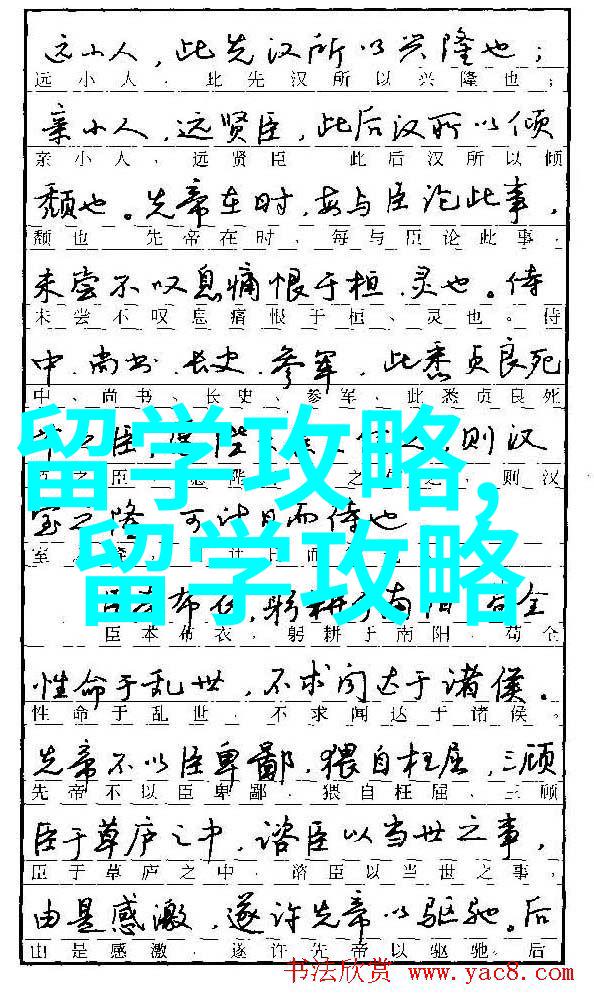 远小人，此先汉所以兴隆也；
远小人，此先汉所以兴隆也；
亲小人，远贤臣，此后汉所以倾
亲小人，远贤臣 此后汉所以倾
颓也。先帝在时，每与臣论此事，
颓也 先帝在时，每与臣论此事，
未尝不叹息痛恨于桓、灵也。侍
未尝不叹息痛恨于桓、灵也。侍
中、尚书、长史、参军，此悉贞良死
中、尚书、长史、参军，此悉贞良死
之臣 则汉
之臣 则汉
留学攻略,
室之隆 可计日而待也
室
留学攻略
布衣，躬耕于南阳 苟全
臣本布衣，躬耕于南阳，苟全
性命于乱世，不求闻达于诸侯。
性命于乱世，不求闻达于诸侯。
先帝不以臣卑鄙，猥自枉屈，三顾
先帝不以臣卑鄙，猥自枉屈、三顾
臣于草庐之中，谘臣以当世之事，
臣于草庐之中，谘臣以当世之事，
由是感激，遂许先帝以驱驰。后
由是感激，遂许先帝以驱驰。后
书法欣赏 www.yac8.com